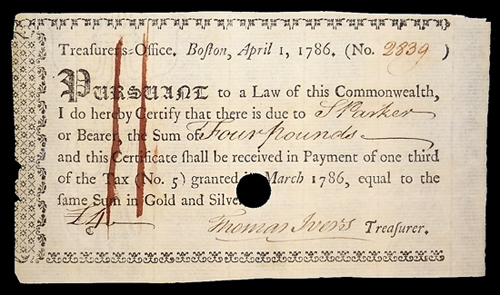 Treasurer's-Office. Boston, April 1, 1786. (No. 2839 )
PURSUANT to a Law of this Commonwealth,
I do hereby Certify that there is due to S Parker
or Bearer, the Sum of Four Pounds
and this Certificate shall be received in Payment of one third
of the Tax (No. 5) granted in March 1786, equal to the
same Sum in Gold and Silver.
£4
Thomas Ivers Treasurer.